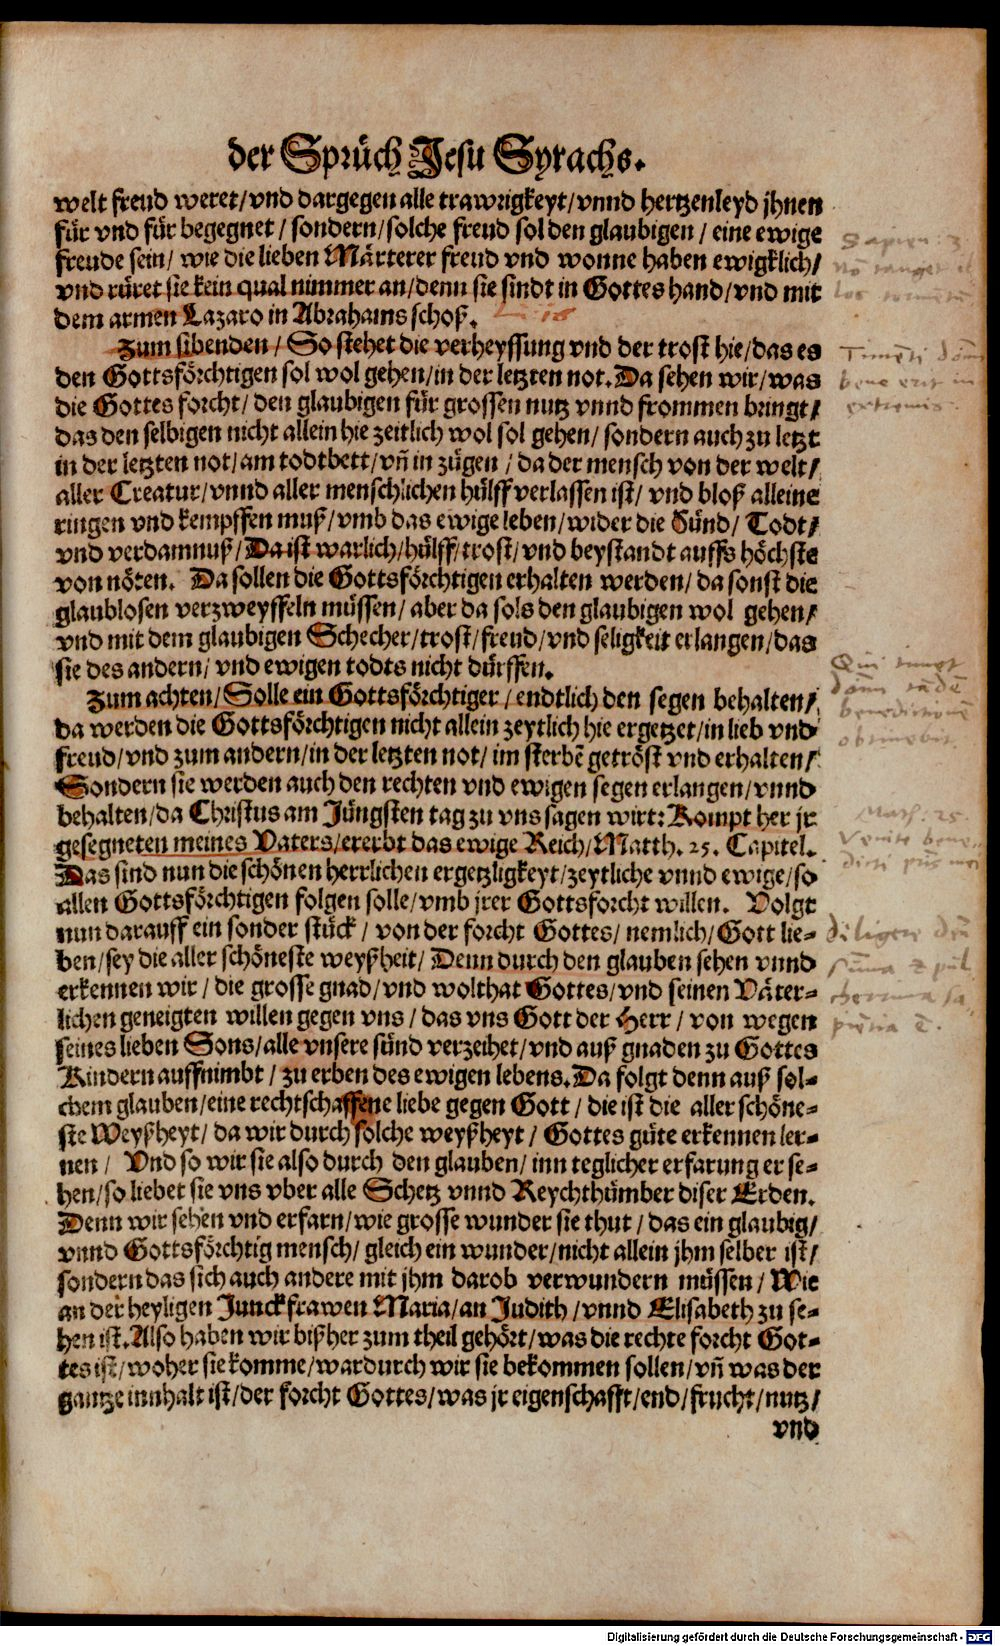 der Sprüch Jesu Syrachs.
welt freud weret/vnd dargegen alle trawrigkeyt/vnnd hertzenleyd jhnen
für vnd für begegnet/ sondern/solche freud sol den glaubigen/ eine ewige
freude sein/ wie die lieben Märterer freud vnd wonne haben ewigklich/
vnd rüret sie kein qual nimmer an/denn sie sindt in Gottes hand/vnd mit
dem armen Lazaro in Abrahams schoß.
Zum sibenden/ So stehet die verheyssung vnd der trost hie/das es
den Gottsförchtigen sol wol gehen/in der letzten not. Da sehen wir/was
die Gottes forcht/ den glaubigen für grossen nutz vnnd frommen bringt/
das den selbigen nicht allein hie zeitlich wol sol gehen/ sondern auch zu letzt
in der letzten not/am todtbett/vñ in zügen/ da der mensch von der welt/
aller Creatur/vnnd aller menschlichen hülff verlassen ist/ vnd bloß alleine
ringen vnd kempffen muß/vmb das ewige leben/wider die Sünd/ Todt/
vnd verdamnuß/Da ist warlich/hülff/trost/vnd beystandt auffs höchste
von nöten. Da sollen die Gottsförchtigen erhalten werden/da sonst die
glaublosen verzweyffeln müssen/ aber da sols den glaubigen wol gehen/
vnd mit dem glaubigen Schecher/trost/freud/vnd seligkeit erlangen/das
sie des andern/ vnd ewigen todts nicht dürffen.
Zum achten/Solle ein Gottsförchtiger/endtlich den segen behalten/
da werden die Gottsförchtigen nicht allein zeytlich hie ergetzet/in lieb vnd
freud/vnd zum andern/in der letzten not/ im sterbē getröst vnd erhalten/
Sondern sie werden auch den rechten vnd ewigen segen erlangen/vnnd
behalten/da Christus am Jüngsten tag zu vns sagen wirt: Kompt her jr
gesegneten meines Vaters/ererbt das ewige Reich/Matth. 25. Capitel.
Das sind nun die schönen herrlichen ergetzligkeyt/zeytliche vnnd ewige/so
allen Gottsförchtigen folgen solle/vmb jrer Gottsforcht willen. Volgt
nun darauff ein sonder stück/ von der forcht Gottes/ nemlich/Gott lie=
ben/sey die aller schöneste weyßheit/ Denn durch den glauben sehen vnnd
erkennen wir/ die grosse gnad/vnd wolthat Gottes/vnd seinen Väter=
lichen geneigten willen gegen vns/ das vns Gott der Herr/ von wegen
seines lieben Sons/alle vnsere sünd verzeihet/vnd auß gnaden zu Gottes
Kindern auffnimbt/ zu erben des ewigen lebens. Da folgt denn auß sol=
chem glauben/eine rechtschaffene liebe gegen Gott/ die ist die aller schöne=
ste Weyßheyt/ da wir durch solche weyßheyt/ Gottes güte erkennen ler=
nen/ Vnd so wir sie also durch den glauben/ inn teglicher erfarung erse=
hen/so liebet sie vns vber alle Schetz vnnd Reychthümber diser Erden.
Denn wir sehen vnd erfarn/wie grosse wunder sie thut/ das ein glaubig/
vnnd Gottsförchtig mensch/ gleich ein wunder/nicht allein jhm selber ist/
sondern das sich auch andere mit jhm darob verwundern müssen/ Wie
an der heyligen Junckfrawen Maria/an Judith/vnnd Elisabeth zu se=
hen ist. Also haben wir bißher zum theil gehört/was die rechte forcht Got=
tes ist/woher sie komme/wardurch wir sie bekommen sollen/vñ was der
gantze innhalt ist/der forcht Gottes/was jr eigenschafft/end/frucht/nutz/
vnd
Sapien: 3
Timēti
bene erit in
extremis.
Qui timet
benedictionē
obtinebit
Math: 25.
Venite bene
diligere
Digitalisierung gefördert durch die Deutsche Forschungsgemeinschaft - DFG